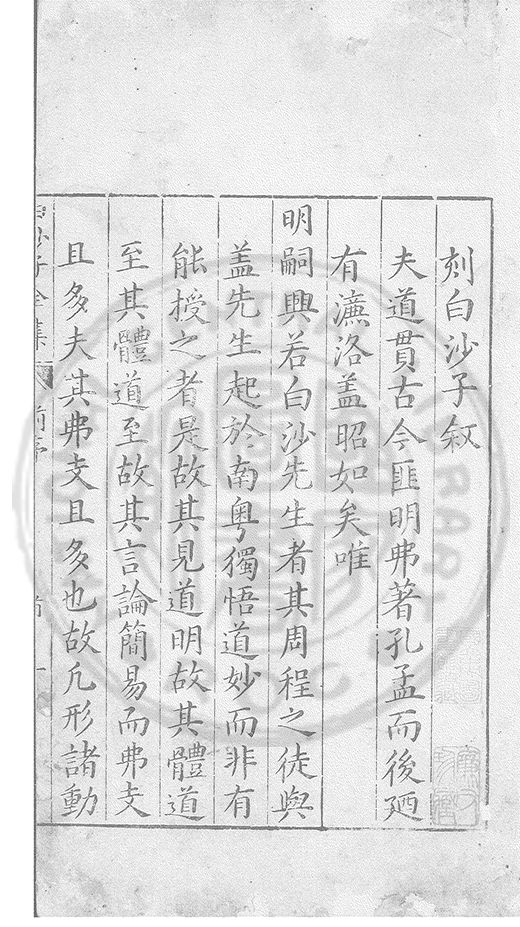 刻白沙子敘
夫道貫古今匪明弗著孔孟而後廼
有濂洛盖昭如矣唯
明嗣興若白沙先生者其周程之徒與
盖先生起於南粤獨悟道妙而非有
能授之者是故其見道明故其體道
至其體道至故其言論簡易而弗支
且多夫其弗支且多也故凡形諸動
白沙子全集 前序